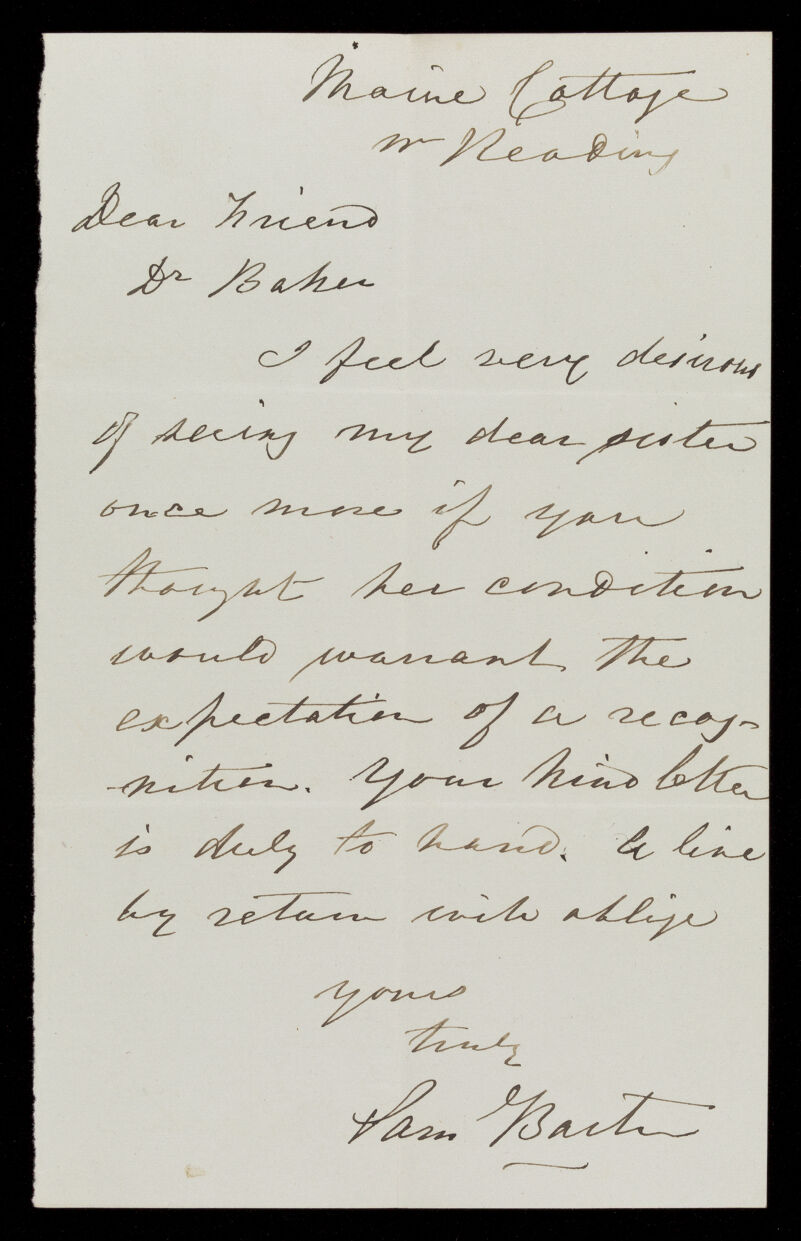 Maine Cottage
nr Reading
Dear Friend
Dr Baker
I feel very desirous
of seeing my dear sister
once more if you
thought her condition
would warrant the
expectation of a recog-
-nition. Your kind letter
is duly to hand. A line
by return will oblige
yours
truly
Sam